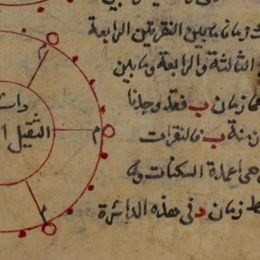 زمان ما بين النقرتين الرابعة
الثالثة والرابعة وما بين
زمان ب فقد وجدنا
زمنة ب فالنقرات
هي اعمدة السكنات وكه
ط زمان د في هذه الدائرة
م
م
م
دائرة
الثقيل ا